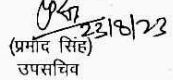 23/8/23
(प्रमोद सिंह)
उपसचिव